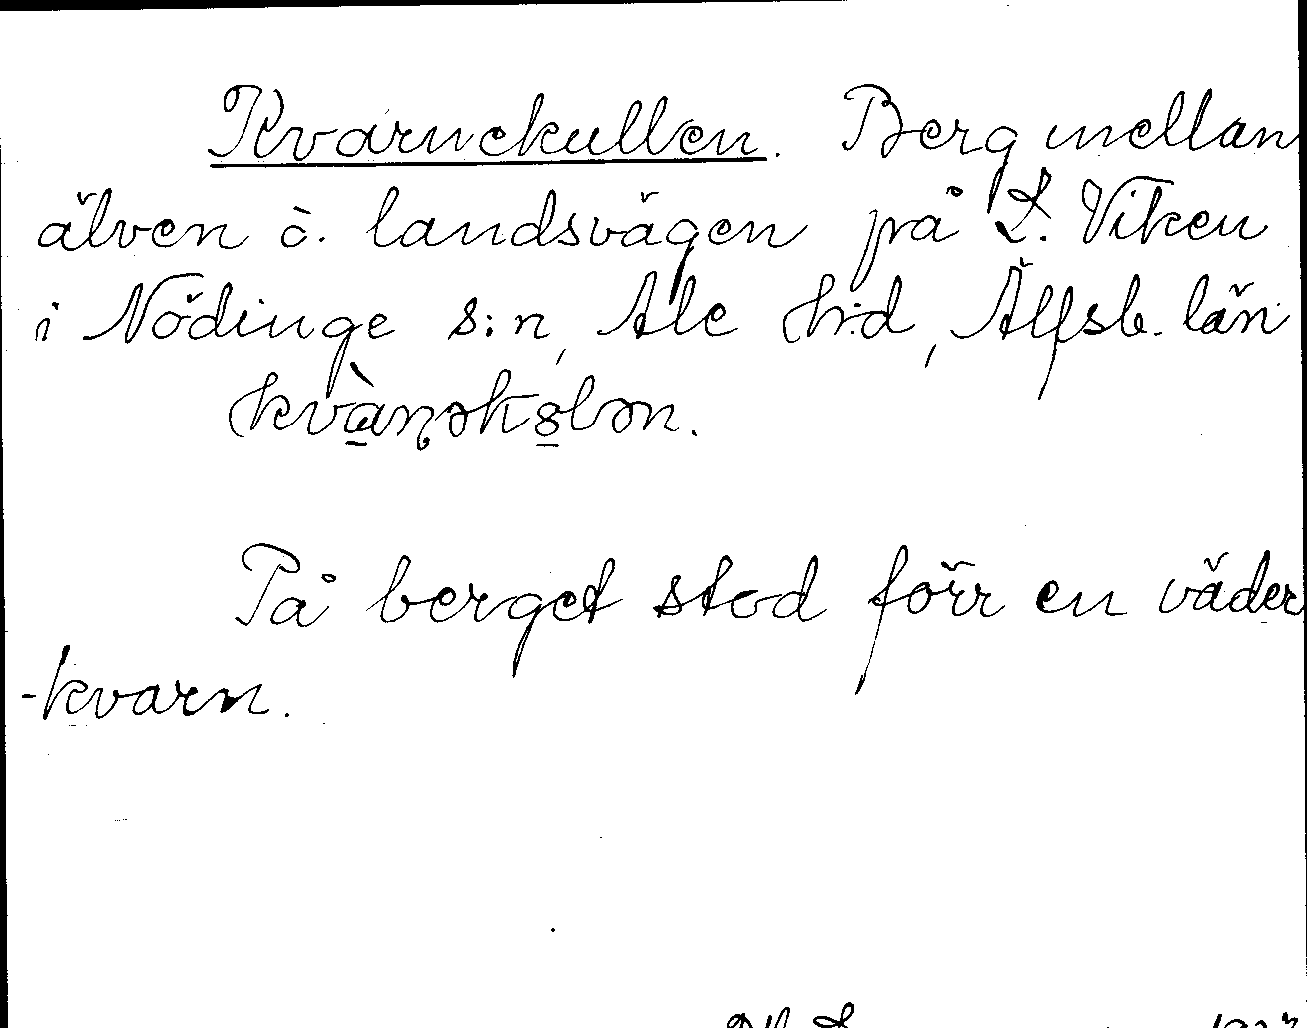 Kvarnekullen. Berg mellan
älven o. landsvägen på L. Viken
i Nödinge s:n, Ale hd, Älfsb. län
kvànəkȣlən.
På berget stod förr en väder
-kvarn.